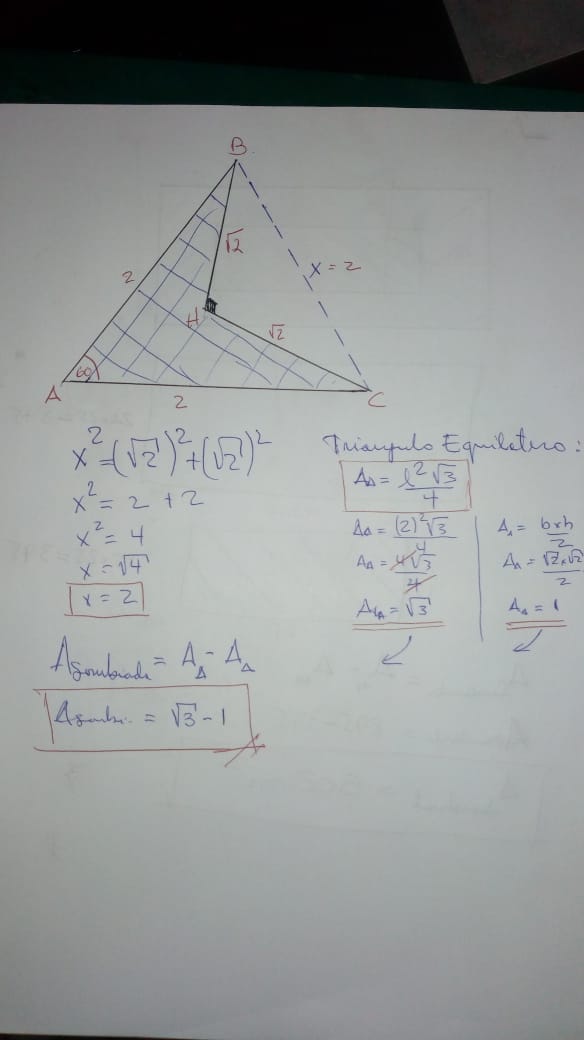 B
2
√2
x = 2
H
√2
60
A
2
C
x² = (√2)² + (√2)²
x² = 2 + 2
x² = 4
x = √4
x = 2
Triángulo Equilatero:
A△ = l²√3/4
A△ = (2)²√3/4
A△ = 4√3/4
A△ = √3
A△ = bxh/2
A△ = √2x√2/2
A△ = 1
Asombreada = A△ - A△
Asombr. = √3 - 1